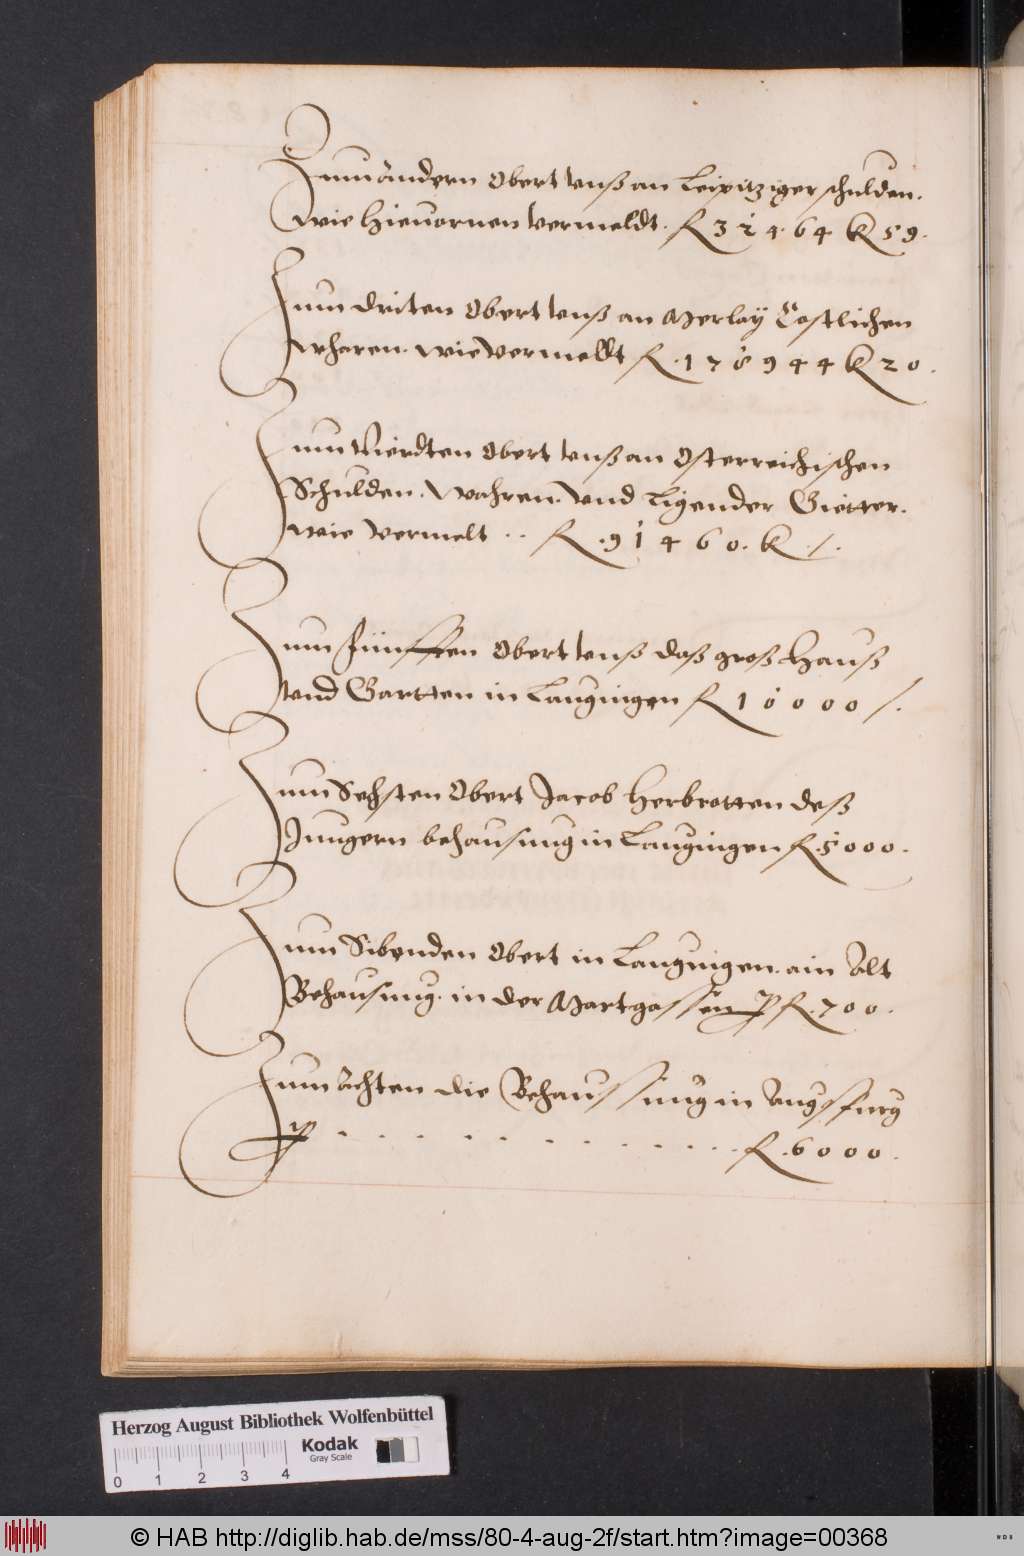 Zum andern Obert unß an Leipitziger schulden.
wie hieuornen vermeldt. fl 32464 K 59.
Zum driten Obert unß an Merley Costlichen
wharen. wie vermelt fl. 178944 K 20.
Zum Vierdten Obert unß an Osterreichischen
Schulden. Wahren. Vnd Ligender Gietter.
wie vermelt .. fl. 91460. K ./.
Zum Fünfften Obert unß daß groß Hauß
vnd Gartten in Laugingen fl 10000 /.
Zum Sechsten Obert Jacob Herbrotten deß
Jungern behausung in Laugingen fl. 5000.
Zum Sibenden Obert in Laugingen. ain Alt
Behausung. in der Martgassen p fl. 700.
Zum Achten die Behaussung in Augspurg
p . . . . . . . . . . . fl. 6000.
Herzog August Bibliothek Wolfenbüttel
Kodak
Gray Scale
0 1 2 3 4
© HAB http://diglib.hab.de/mss/80-4-aug-2f/start.htm?image=00368